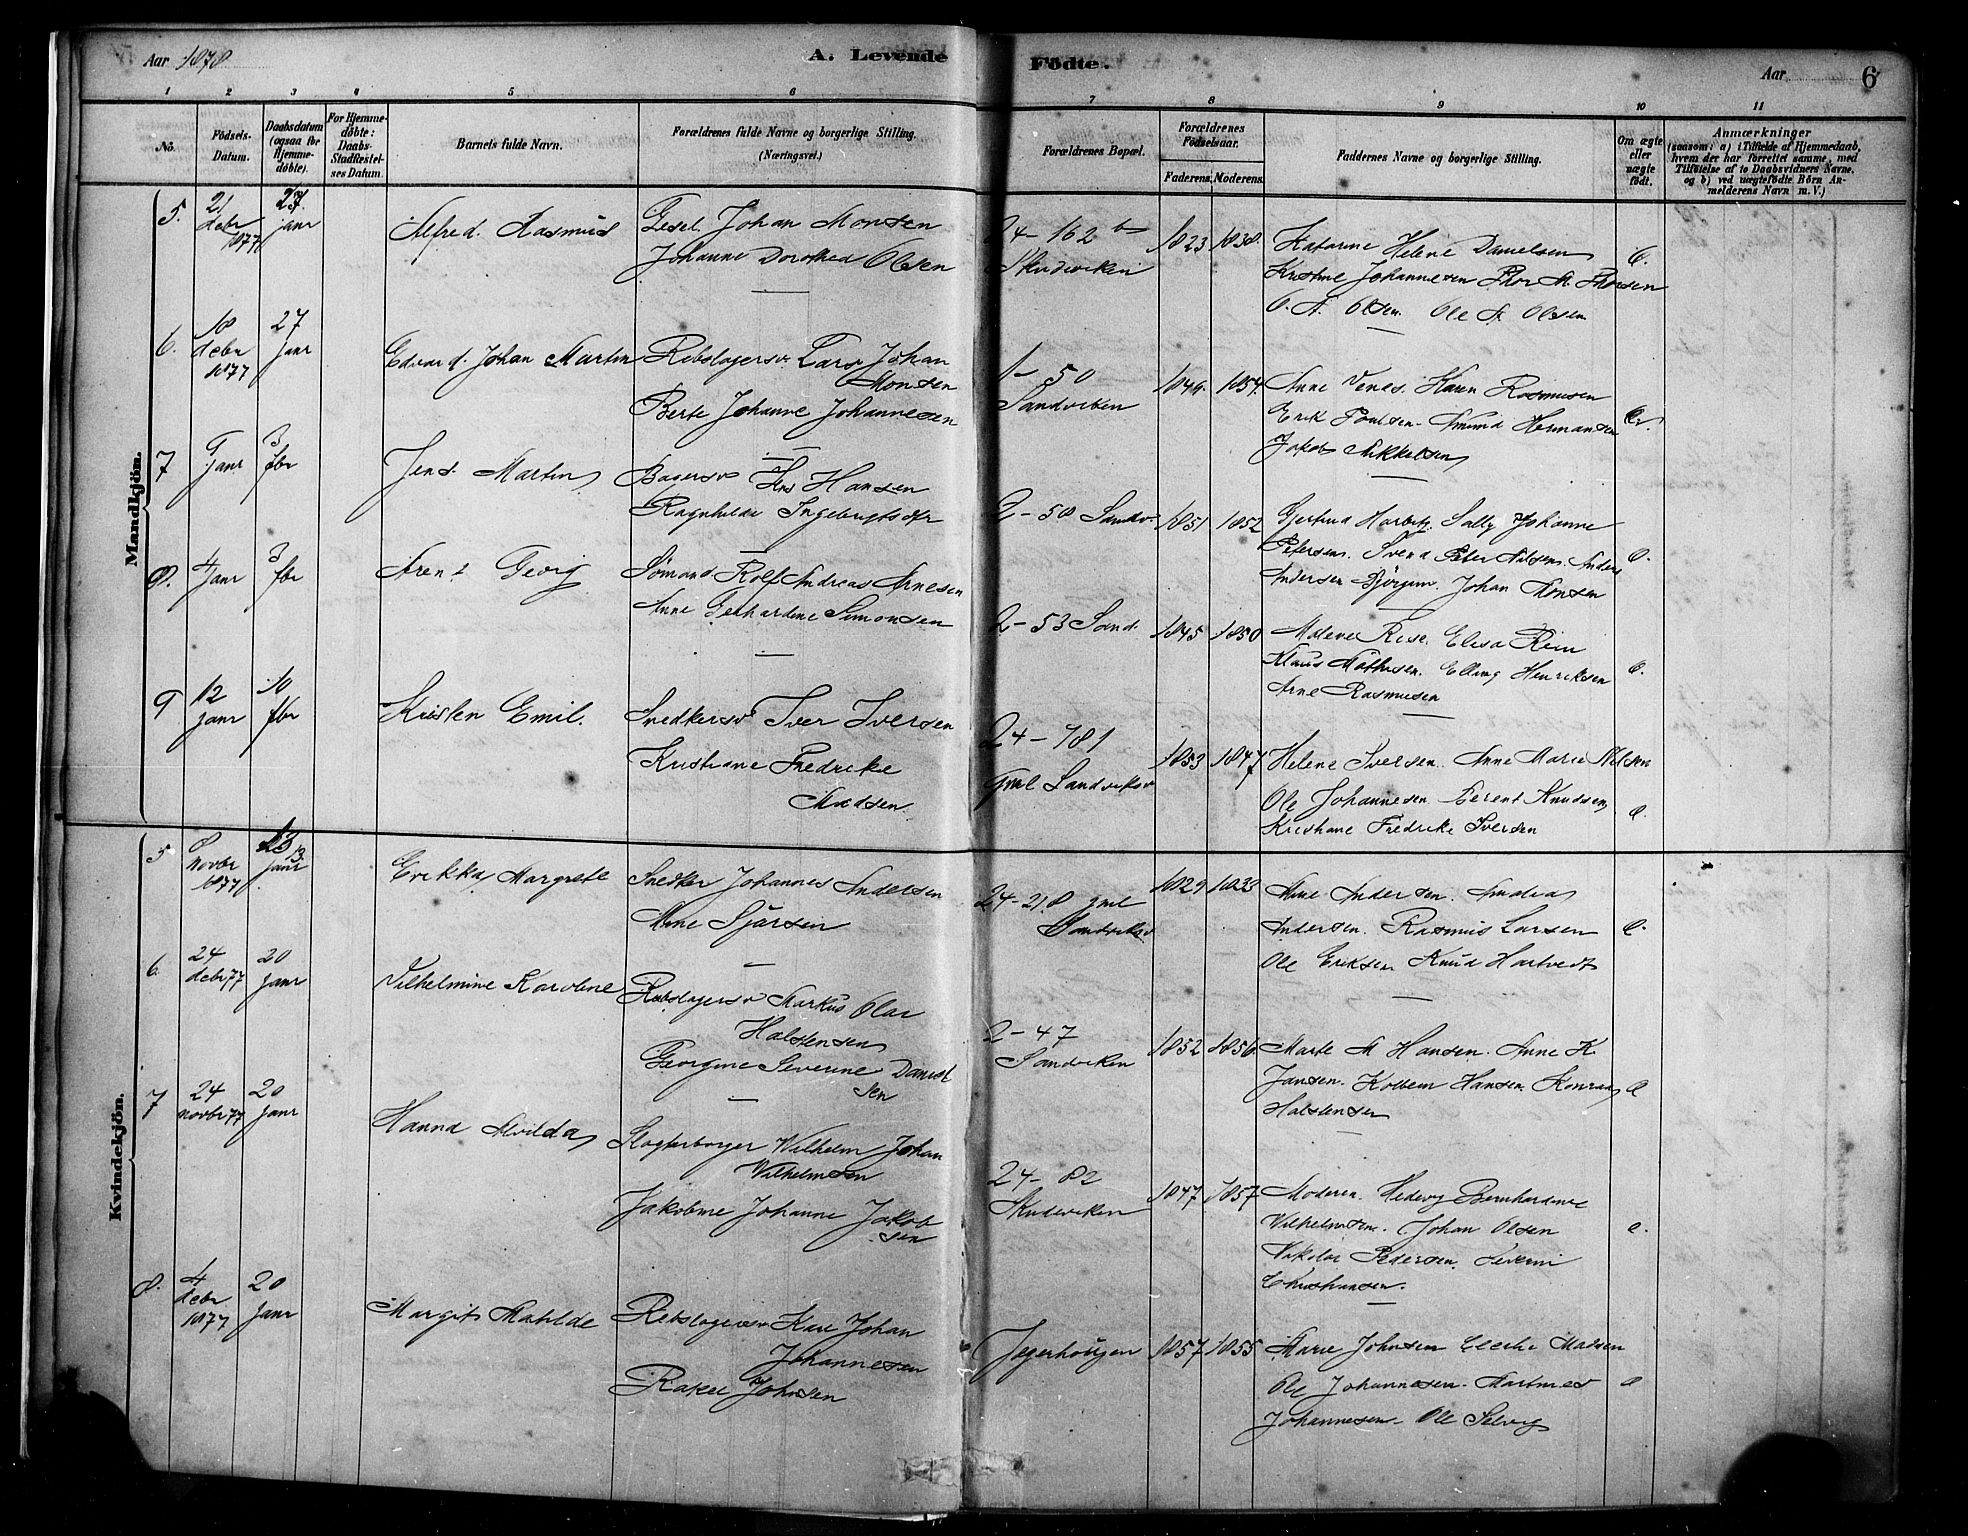 Aar 1878
A. Levende
Födte.
Aar
6
1 2 3 4 5 6 7 8 9 10 11
No.
Födsels-Datum.
Daabsdatum (ogsaa for Hjemme-döbte).
For Hjemme-döbte: Daabs-Stadfæstel-ses Datum.
Barnets fulde Navn.
Forældrenes fulde Navne og borgerlige Stilling. (Næringsvei.)
Forældrenes Bopæl.
Forældrenes Födselsaar.
Faderens. Moderens.
Faddernes Navne og borgerlige Stilling.
Om ægte eller uægte födt.
Anmærkninger
(saasom: a) i Tilfælde af Hjemmedaab,
hvem der har forrettet samme, med
Tilföielse af to Daabsvidners Navne,
og b) ved uægtefödte Börn An-
melderens Navn m. V.)
Mandkjön.
5. 21 debr 1877 27 janr
Alfred Rasmus
Gesel. Johan Monsen
Johanne Dorothea Olsen
24-162 b
Skudeviken
1823 1838
Katarine Helene Danielsen
Kristine Johannesen Thor M. Thorsen
O. A. Olsen. Ole A. Olsen
e.
6. 18 debr 1877 27 janr
Edvard Johan Martin
Rebslagersv. Lars Johan
Monsen
Berte Johanne Johannesen
1-50
Sandviken
1849 1854
Anne Venes. Karen Rasmusen
Erik Poulsen. Amund Hermansen
Jakob Mikkelsen
e.
7 9 janr 3 fbr
Jens Martin
Bagersv Hans Hansen
Ragnhilde Ingebrigtsdtr
2-58 Sandv.
1851 1852
Gjertrud Harbitz. Sally Johanne
Petersen. Svend Peter Nilsen. Anders
Andersen Bjørgum. Johan Tonsen
e.
8. 4 janr 3 fbr
Arent Georg
Sømand Rolf Andreas Arnesen
Anne Gerhardine Simonsen
2-53 Sand.
1845 1850
Malene Rise. Elisa Rein
Klaus Mathisen. Elling Henriksen
Arne Rasmusen
e.
9 12 janr 10 fbr
Kristen Emil.
Snedkersv Iver Iversen
Kristiane Fredrike
Madsen
24-181
gml Sandviksv
1853 1847
Helene Iversen. Anne Marie Nilsen
Ole Johannesen. Berent Knudsen
Kristiane Fredrike Iversen
e.
Kvindekjön.
5 8 novbr 1877 13 janr
Erikka Margrete
Snedker Johannes Andersen
Anne Sjursen
24-218 gml
Sandviksv
1829 1833
Anne Andersen. Andrea
Andersen. Rasmus Larsen
Ole Eriksen Knud Hartvedt
e.
6. 24 debr 77 20 janr
Vilhelmine Karoline
Rebslagersv Markus Olai
Halstensen
Georgine Severine Daniel
sen
2-47
Sandviken
1852 1856
Marte M Hansen. Anne K.
Jansen. Kolbein Hansen. Konrad
Halstensen
e
7 24 novbr 77 20 janr
Hanna Alvilda
Slagterborger Vilhelm Johan
Vilhelmsen
Jakobine Johanne Jakob
sen
24-82
Skudeviken
1847 1857
Moderen. Hedevig Bernhardine
Vilhelmsen. Johan Olsen
Nikolai Pedersen. Severin
Christiansen.
e.
8. 4 debr 1877 20 janr
Margit Matilde
Rebslagersv Karl Johan
Johannesen
Rakel Johnsen
Jegerhougen
1857 1855
Marie Johnsen Cecilie Madsen
Ole Johannesen. Martines
Johannesen. Ole Selvig
e